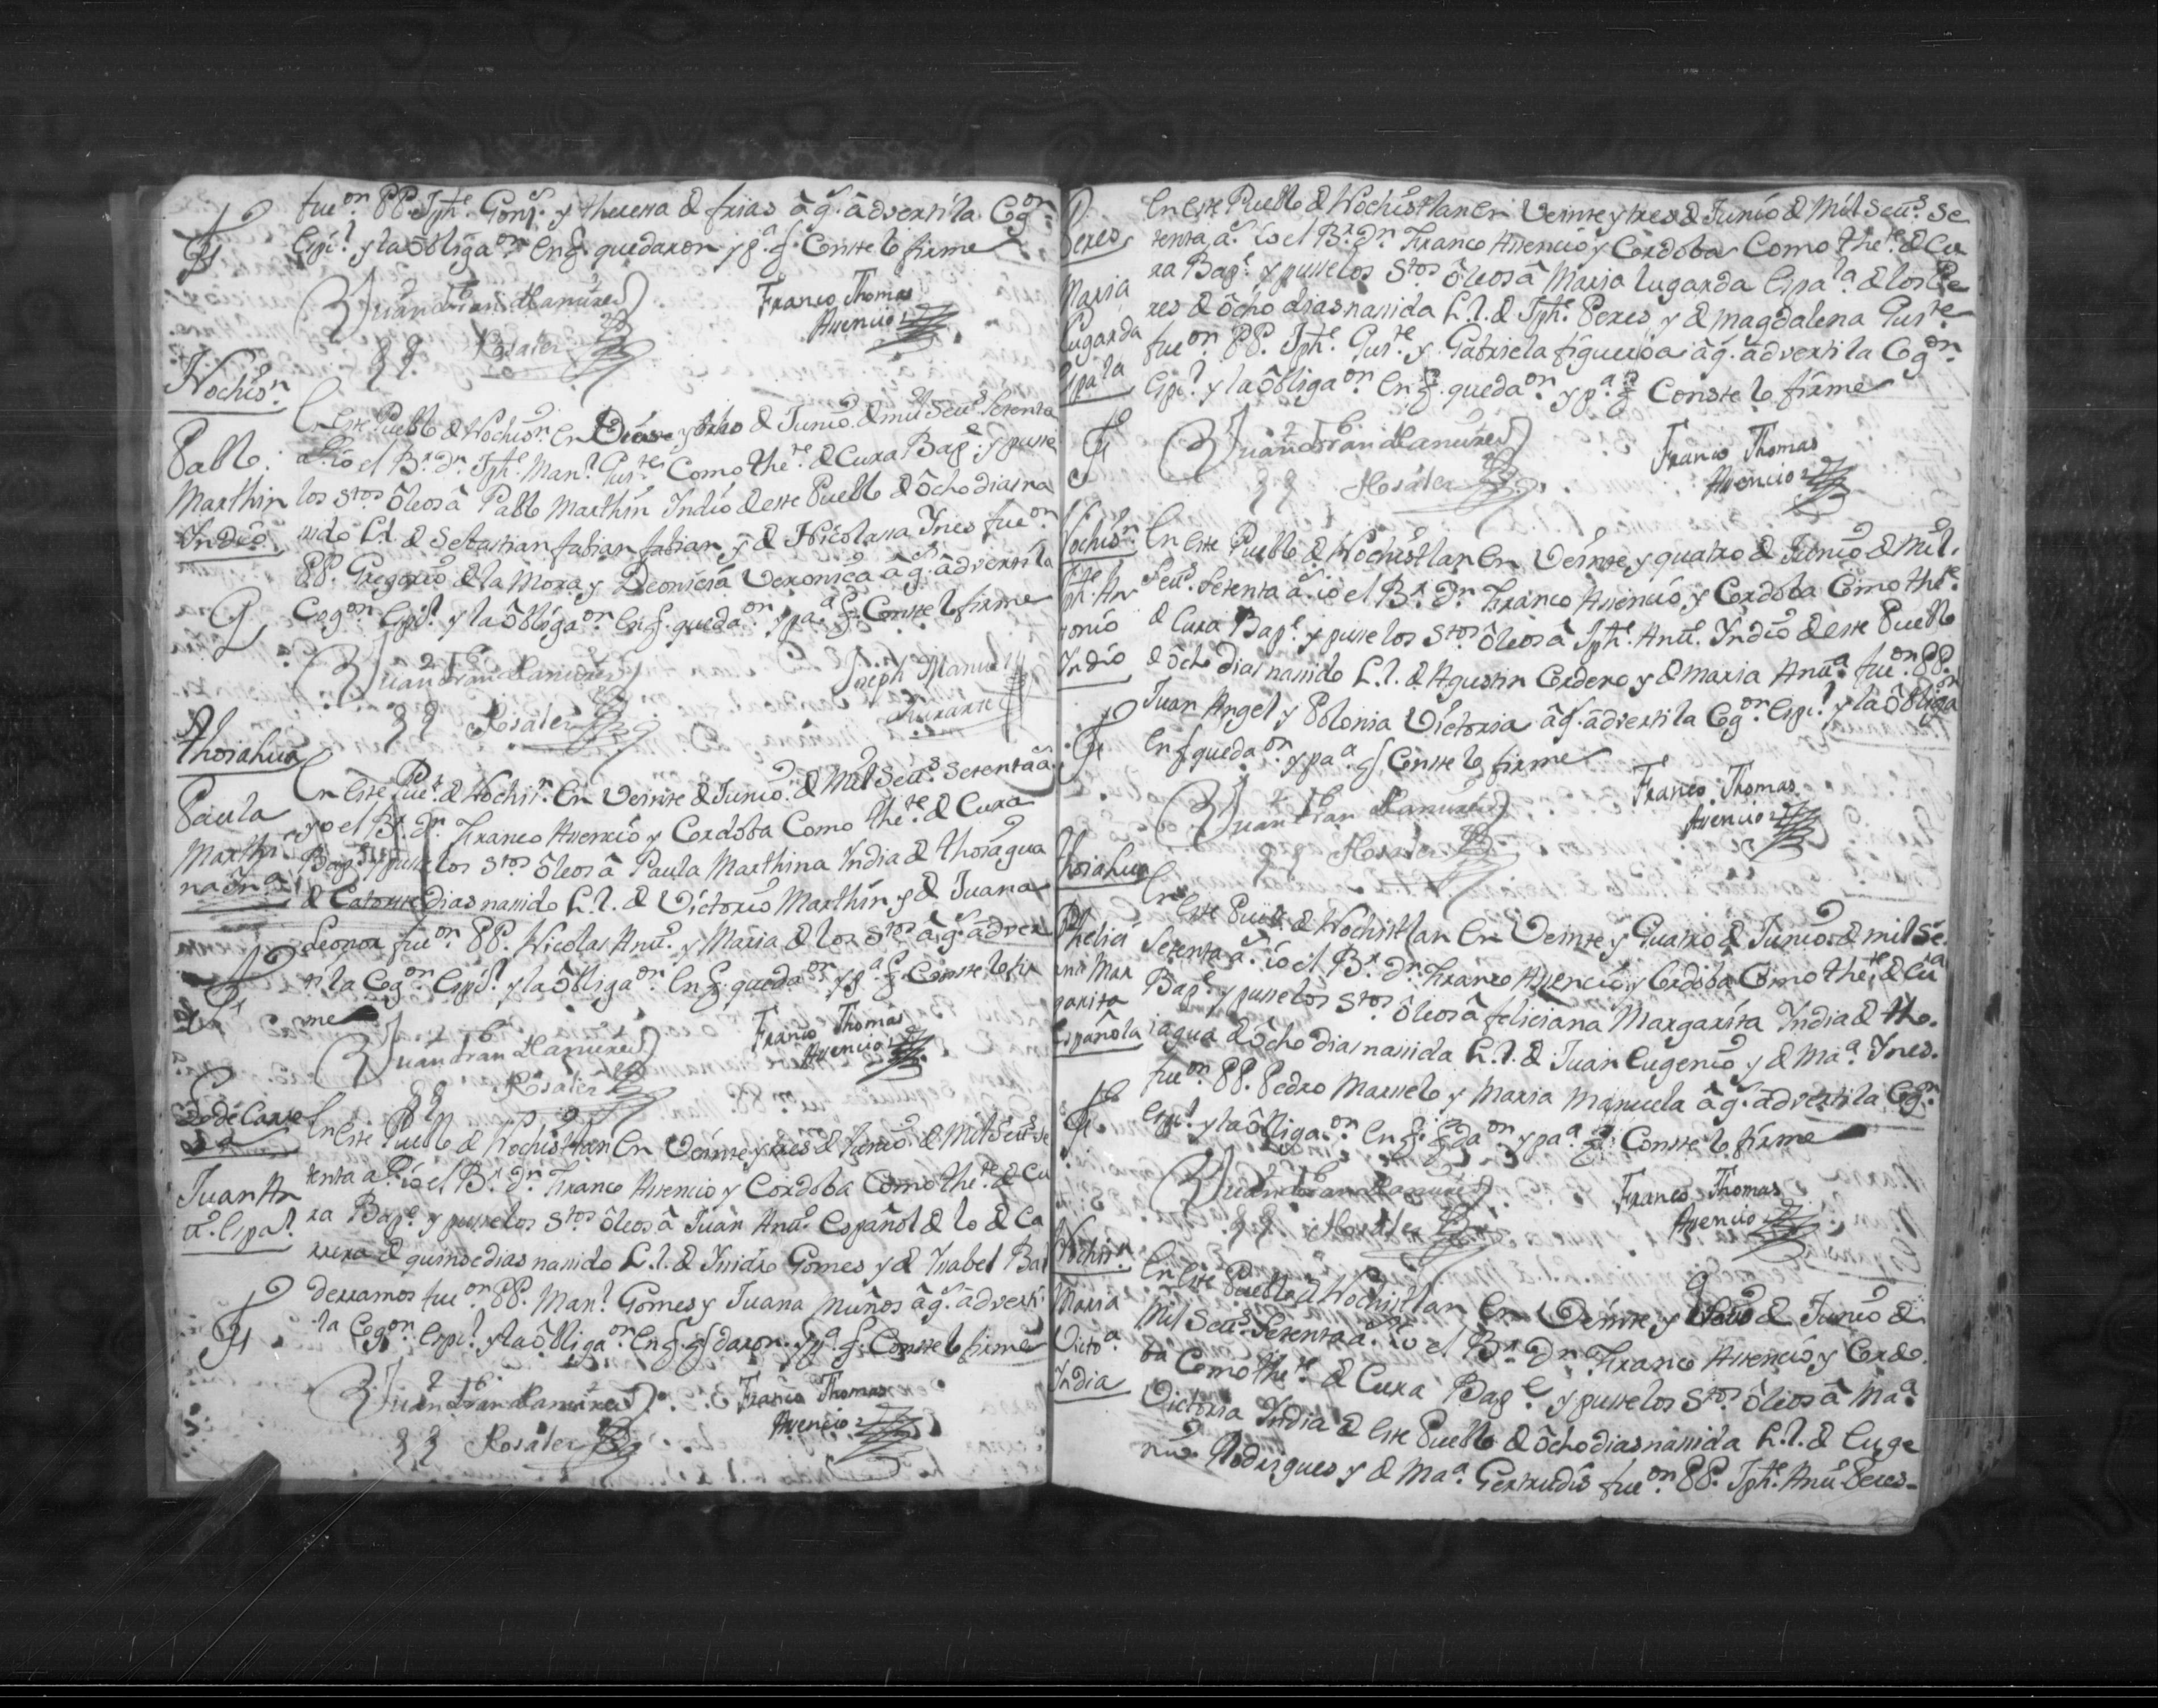 fue^on. PP. Jph^e. Gons^s. y theressa d frias â q^s. âdverti la Cog^on.
Espi^l. y la ôbliga^on. en q^e. quedaron y p^a. q^e. Conste lo firme
Juan Fran Ramires
Rosales
Franco Thomas
Assencio
Nochis^n.
Pablo
Marthin
Indio
En este Pueblo d Nochis^n. en Dies y ocho d Junio d mil Setes^s. Setenta
a^s. io el B^r. d^n. Jph^e. Man^l. Yus^te. Como the^te. d Cura Bap^e. y pusse
los S^tos ôleos â Pablo Marthin Indio d este Pueblo d ôcho dias na
sido h. l. d Sebastian fabian fabian y d Nicolassa Ines fue^on
PP. Gregorio d la Mora y Deonicia Veronica â q^s. âdverti la
Cog^on. Espi^l. y la ôbliga^on. en q^e. queda^on. y pa^a. q^e. Conste lo firme
Juan Fran Ramires
Rosales
Joseph Manuel
Thosahua
Paula
Marthi
na In^a
En este Pue^o. d Nochis^n. en Veinte d Junio d Mil Setes^s. Setenta a^s
yo el B^r. d^n. Franco Assencio y Cordoba Como the^te. d Cura
Bap^e. y pusse los S^tos ôleos â Paula Marthina India d thosagua
d Catorse dias nassido h. l. d Victorio Marthin y d Juana
Leonor fue^on. PP. Nicolas Ant^o. y Maria d los S^tos â q^s. âdver
ti la Cog^on. Espi^l. y la ôbliga^on. en q^e. queda^on. y p^a. q^e. Conste lo fir
me
Juan Fran Ramires
Rosales
Franco Thomas
Assencio
Lo de Carre
ra
Juan An
t^o. Espa^l.
En este Pueblo d Nochistlan en Veinte y tres d Junio d Mil Setes^s. se
tenta a^s. io el B^r. d^n. Franco Assencio y Cordoba Como the^te. d Cu
ra Bap^e. y pusse los S^tos ôleos â Juan Ant^o. Español d lo d Ca
rrera d quinse dias nassido h. l. d Ysidro Gomes y d Ysabel Bal
derramos fue^on. PP. Man^l. Gomes y Juana Muños â q^s. âdverti
la Cog^on. Espi^l. y la ôbliga^on. en q^e. q^e daron. y p^a. q^e. Conste lo firme
Juan Fran Ramires
Rosales
Franco Thomas
Assencio
Peres
Maria
Lugarda
Espa^la
En este Pueblo d Nochistlan en Veinte y tres d Junio d Mil Setes^s. Se
tenta a^s. io el B^r. d^n. Franco Assencio y Cordoba Como the^te. d Cu
ra Bap^e. y pusse los S^tos ôleos â Maria Lugarda Espa^la. d los Pe
res d ôcho dias nassida h. l. d Jph^e. Peres y d Magdalena Yus^te.
fue^on. PP. Jph^e. Yus^te. y Gabriela figueroa â q^s. âdverti la Cog^on.
Espi^l. y la ôbliga^on. en q^e. queda^on. y p^a. q^e Conste lo firme
Juan Fran Ramires
Rosales
Franco Thomas
Assencio
Nochis^n.
Jph^e. An
tonio
Indio
En este Pueblo d Nochistlan en Veinte y quatro d Junio d Mil.
Setes^s. Setenta a^s. io el B^r. d^n. Franco Assencio y Cordoba Como the^te.
d Cura Bap^e. y pusse los S^tos ôleos â Jph^e. Ant^o. Indio d este Pueblo
d ôcho dias nassido h. l. d Agustin Cordero y d Maria Ant^a. fue^on. PP.
Juan Angel y Polonia Victoria â q^s. âdverti la Cog^on. Espi^l. y la ôbliga^on
en q^e queda^on. y pa^a. q^e Conste lo firme
Juan Fran Ramires
Rosales
Franco Thomas
Assencio
Thosahua
Phelici
ana Mar
garita
Española
En este Pueblo d Nochistlan en Veinte y Quatro d Junio d mil Se^s.
Setenta a^s. io el B^r. d^n. Franco Assencio y Cordoba Como the^te. d Cu^ra
Bap^e. y pusse los S^tos. ôleos â feliciana Margarita India d tho.
sagua d ôcho dias nassida h. l. d Juan Eugenio y d Ma^a. Ines.
fue^on. PP. Pedro Marselo y Maria Manuela â q^s. âdverti la Cog^on.
Espi^l. y la ôbliga^on. en q^e. q^e da^on. y pa^a. q^e. Conste lo firme
Juan Fran Ramires
Rosales
Franco Thomas
Assencio
Nochis^n.
Maria
Victo^a
India
En este Pueblo d Nochistlan en Veinte y d Junio d
Mil Setes^s. Setenta a^s. io el B^r. D^n. Franco Assencio y Cordo.
ba Como the^te. d Cura Bap^e. y pusse los S^tos. ôleos â Ma^a.
Victoria India d este Pueblo d ôcho dias nassida h. l. d Euge
nio Rodrigues y d Ma^a. Gertrudis fue^on. PP. Jph^e. Ant^o Peres-